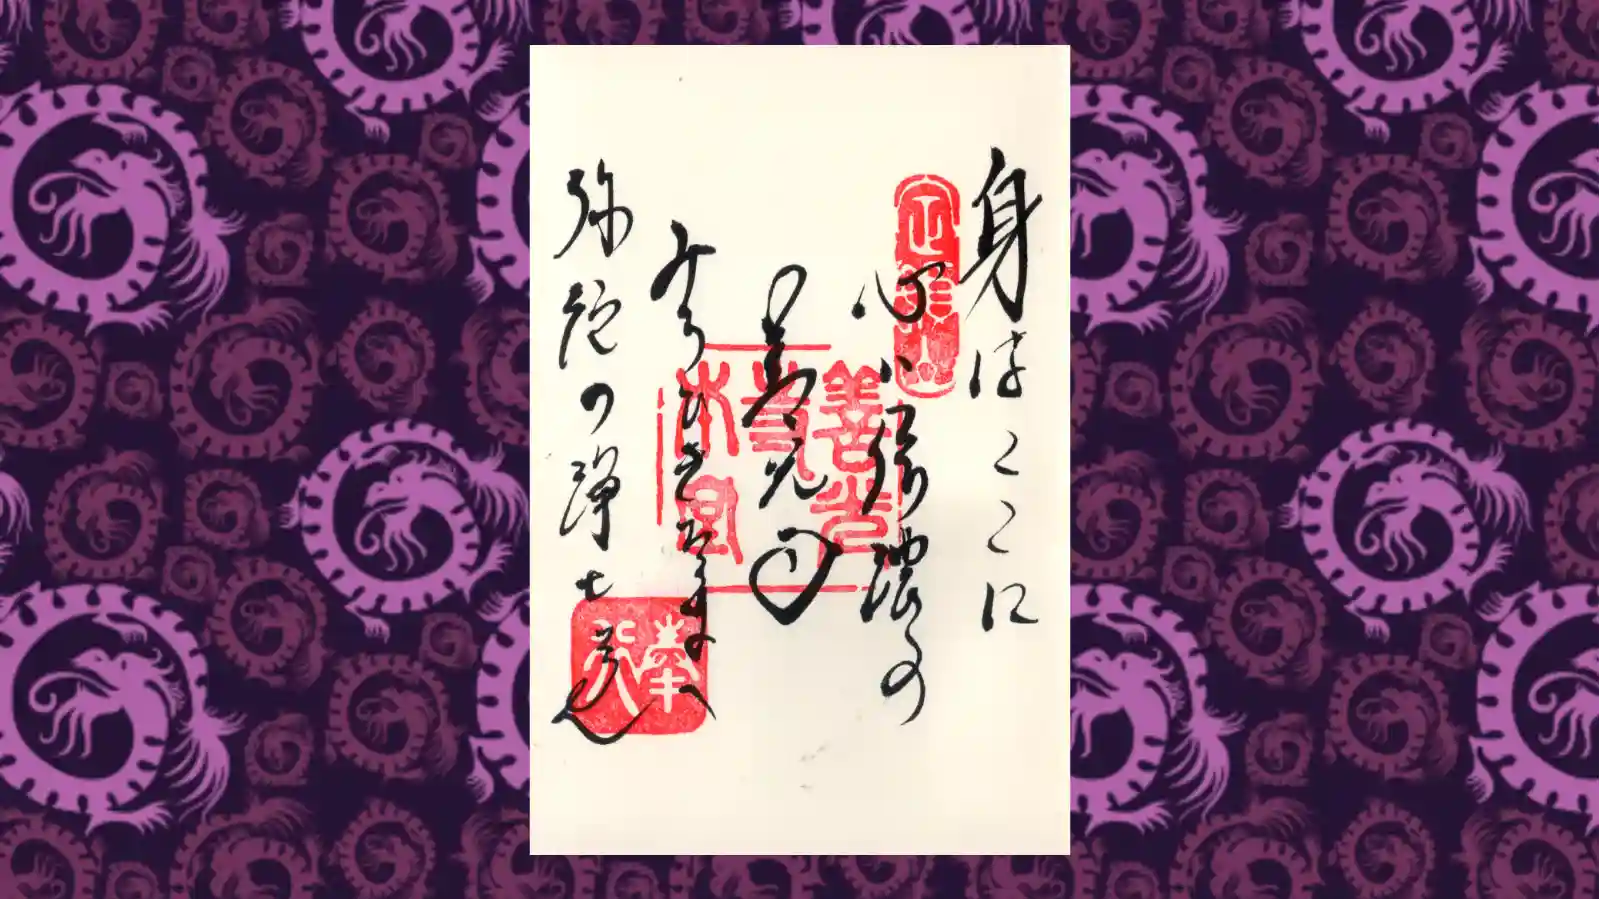 身はここに
心は信濃の
善光寺
みちびきたまへ
弥陀の浄土へ
定額山
善光
寺
本堂
奉拝